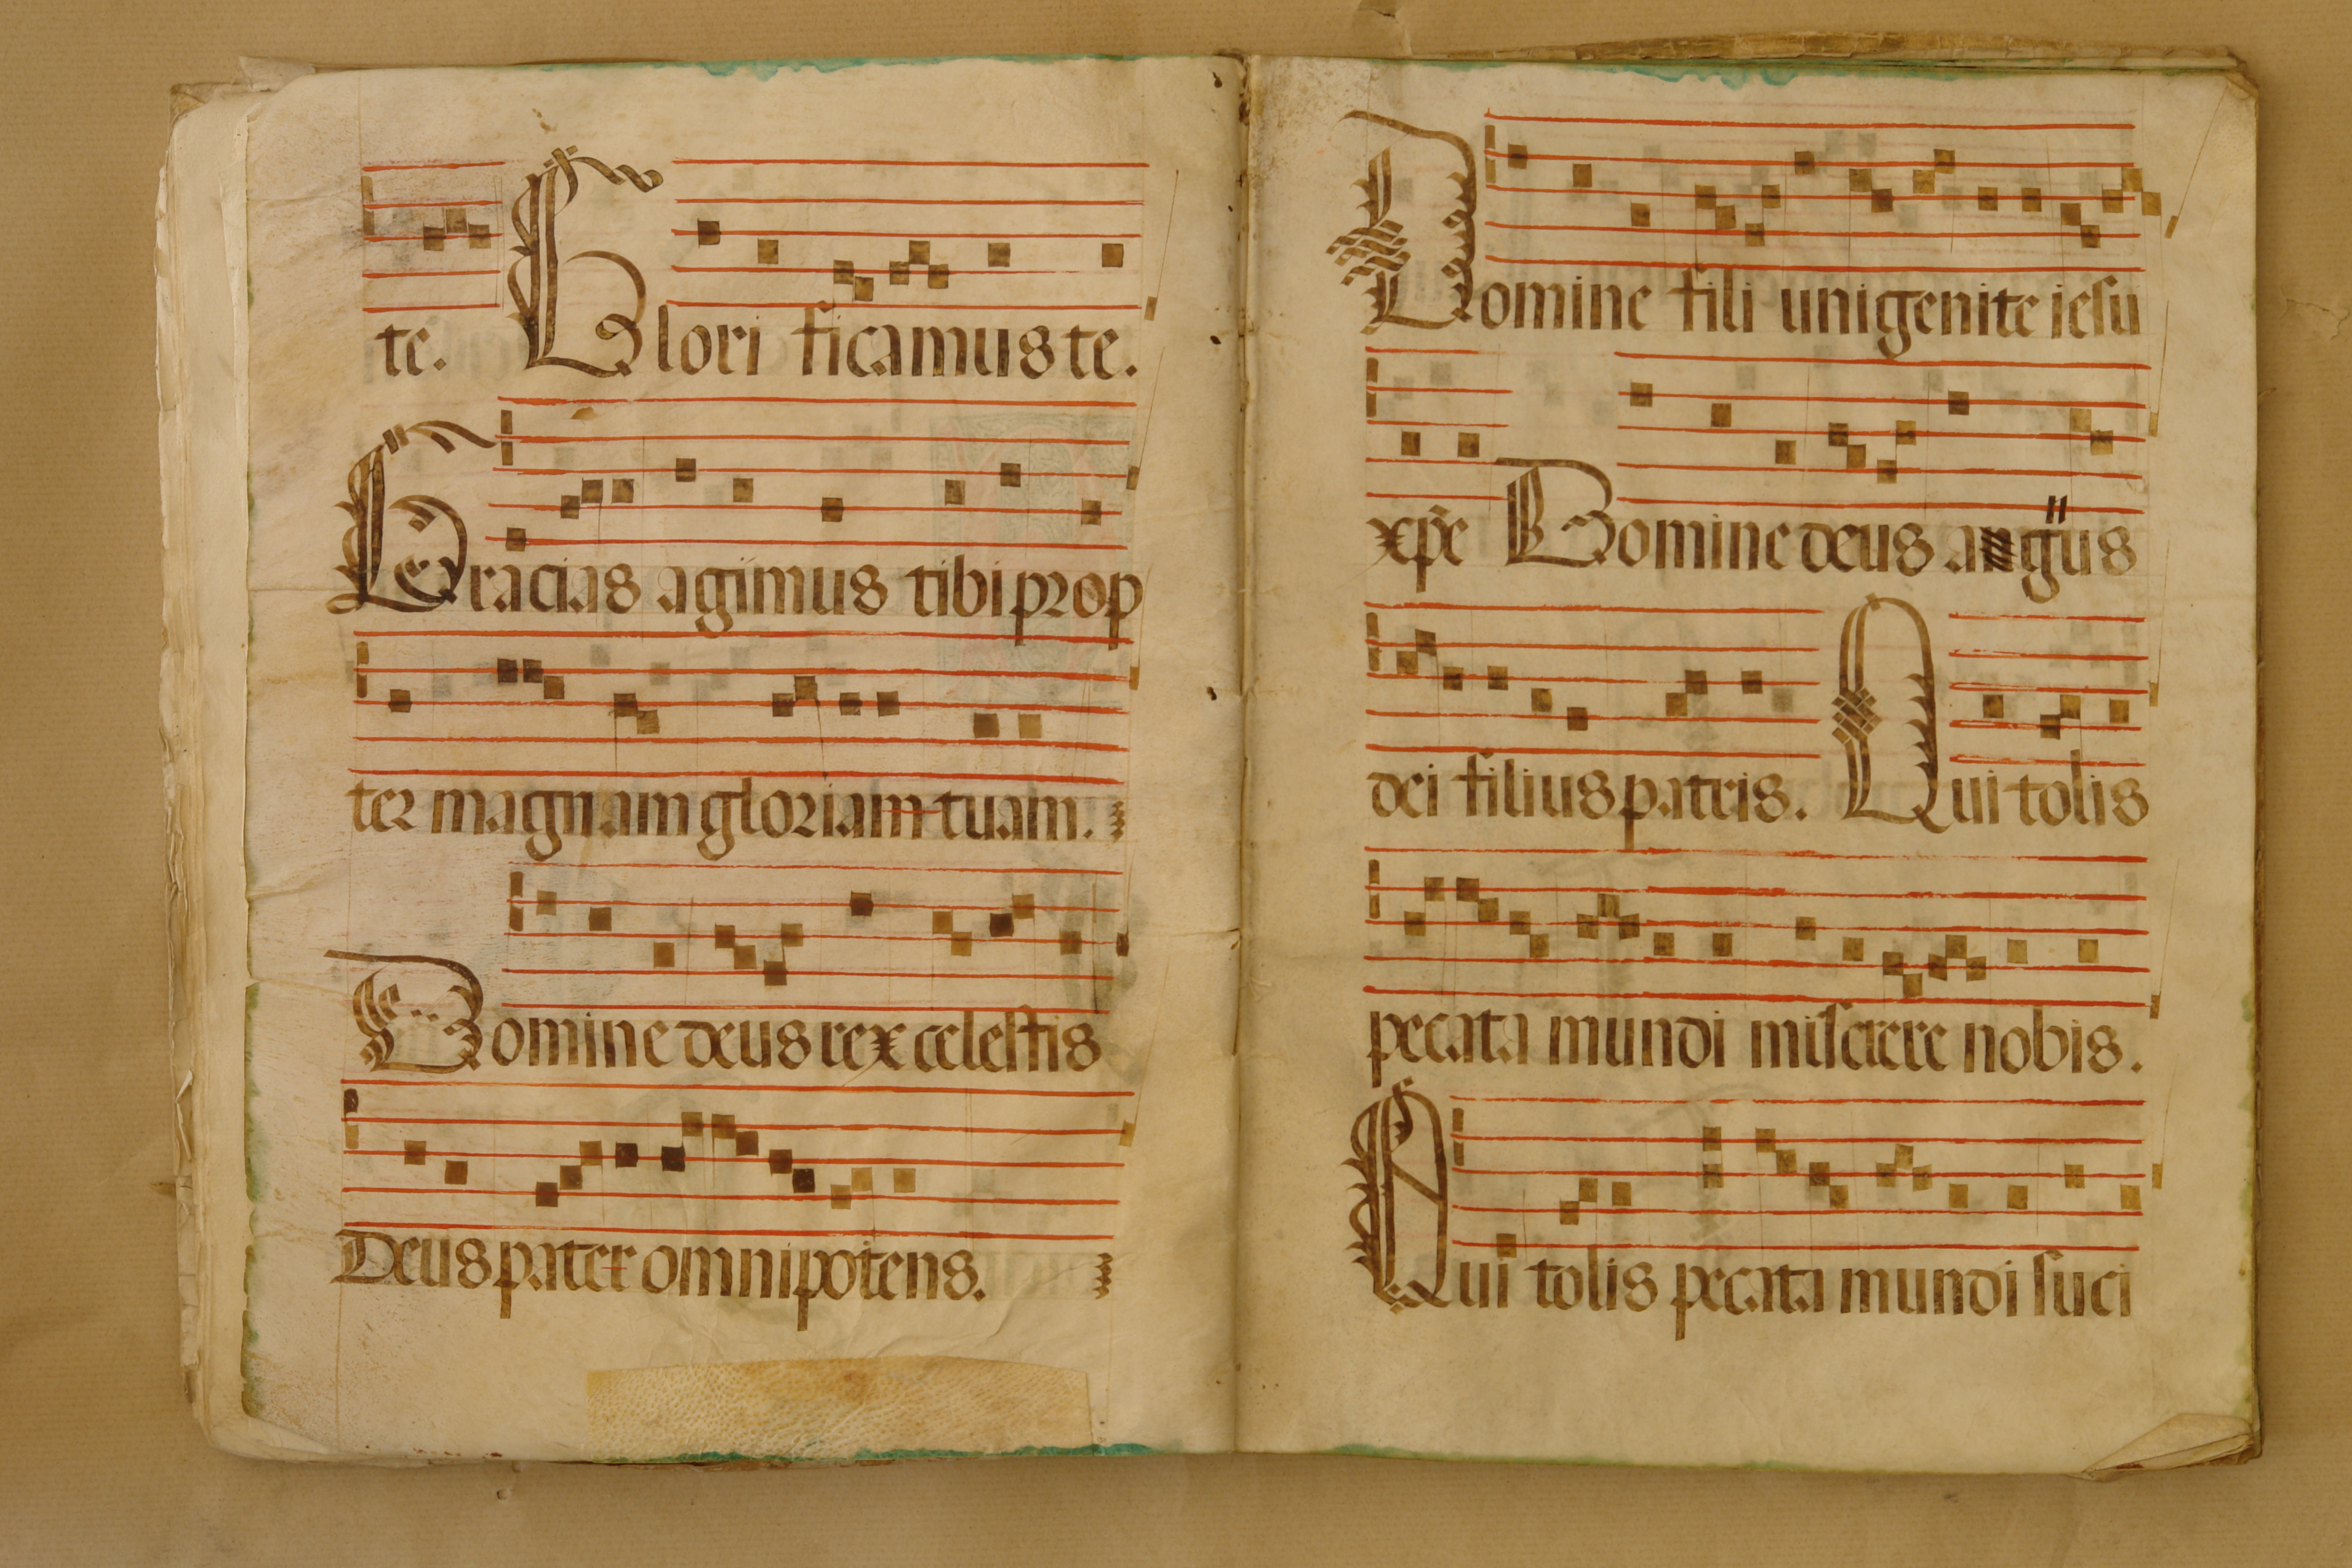 te. Glori ficamus te.
Gracias agimus tibi prop
ter magnam gloriam tuam.
Domine deus rex celestis
Deus pater omnipotens.
Domine fili unigenite iesu
xp̄e Domine deus agnus
dei filius patris. Qui tolis
pecata mundi miserere nobis.
Qui tolis pecata mundi suci